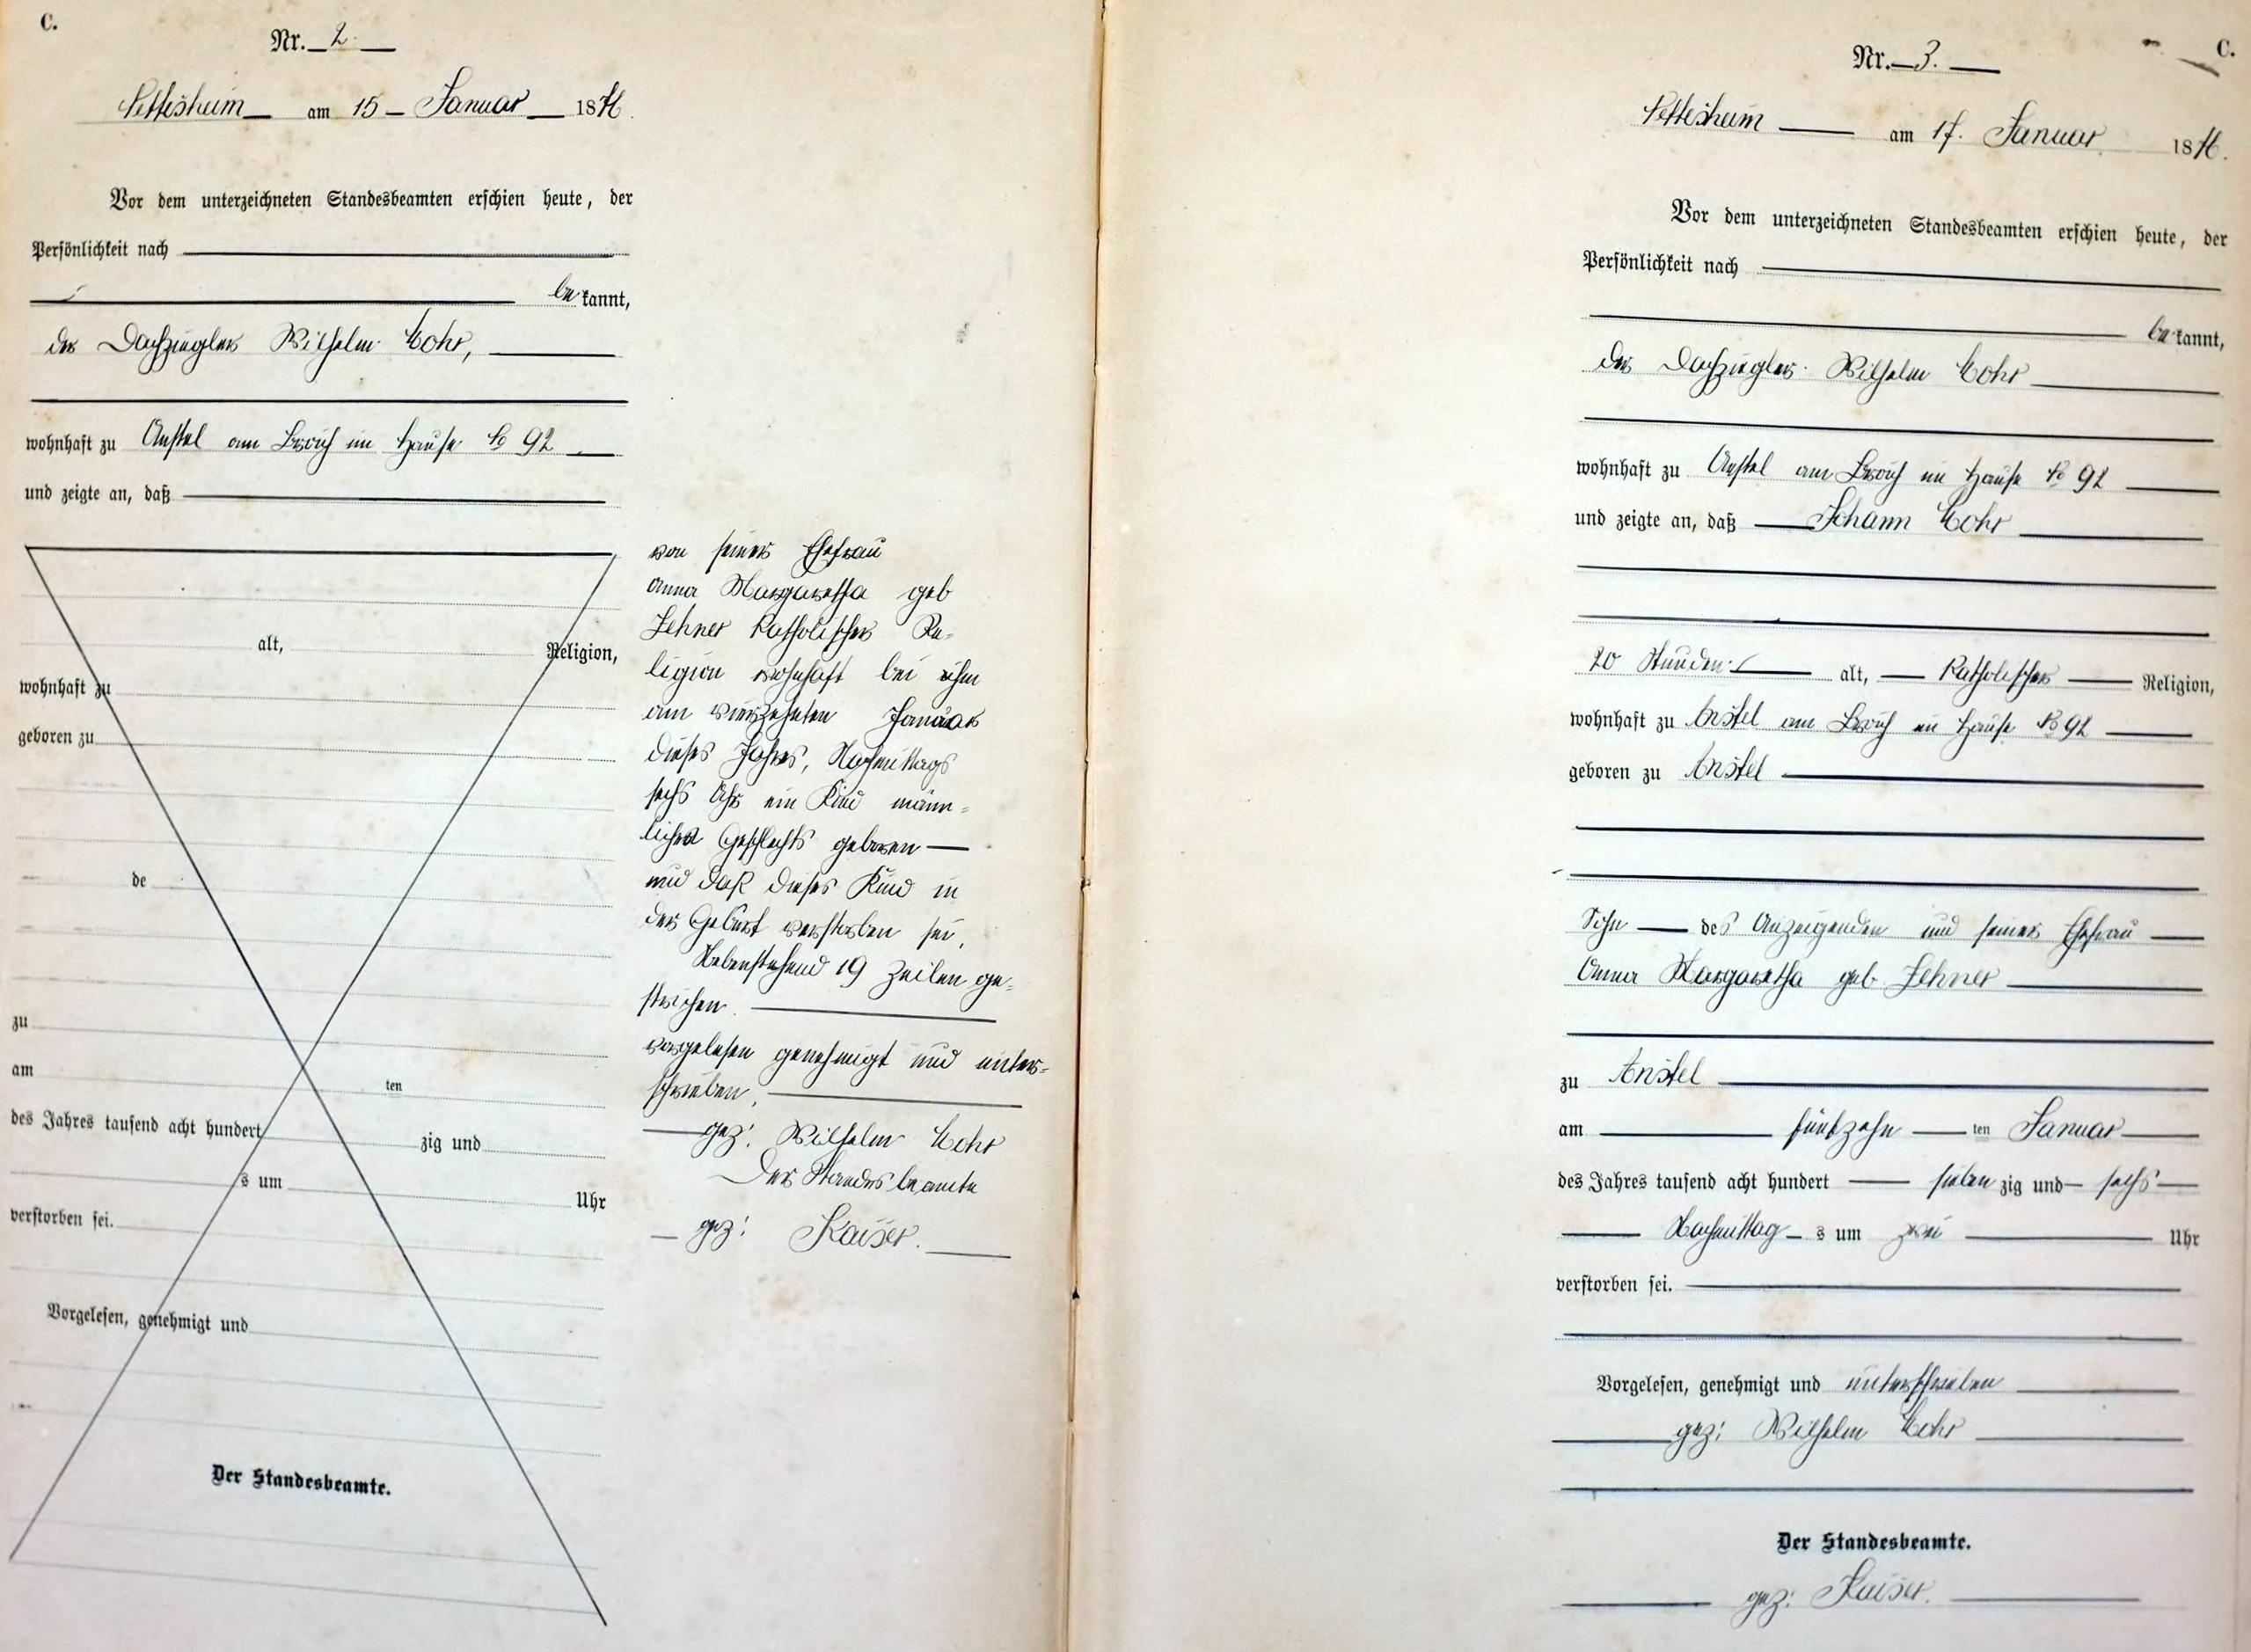 C.
Nr. 2.
Nettesheim am 15 Januar 1876.
Vor dem unterzeichneten Standesbeamten erschien heute, der
Persönlichkeit nach
be kannt,
der Dachziegler Wilhelm Mohr,
wohnhaft zu Anstel am Broich im Hause No 92
und zeigte an, daß
alt, Religion,
wohnhaft zu
geboren zu
de
zu
am ten
des Jahres tausend acht hundert zig und
s um Uhr
verstorben sei.
Vorgelesen, genehmigt und
Der Standesbeamte.
von seiner Ehefrau
Anna Margaretha geb
Zehner Katholischer Re-
ligion wohnhaft bei ihm
am vierzehnten Januar
dieses Jahres, Nachmittags
sechs Uhr ein Kind männ-
lichen Geschlechts geboren
und daß dieses Kind in
der Geburt verstorben sei.
Nebenstehend 19 Zeilen ge-
strichen.
vorgelesen genehmigt und unter-
schrieben.
gez: Wilhelm Mohr
Der Standesbeamte
gez: Kaiser.
C.
Nr. 3.
Nettesheim am 17. Januar 1876.
Vor dem unterzeichneten Standesbeamten erschien heute, der
Persönlichkeit nach
be kannt,
der Dachziegler Wilhelm Mohr
wohnhaft zu Anstel am Broich im Hause No 92
und zeigte an, daß Johann Mohr
20 Stunden alt, Katholischer Religion,
wohnhaft zu Anstel am Broich im Hause No 92
geboren zu Anstel
Sohn des Anzeigenden und seiner Ehefrau
Anna Margaretha geb. Zehner
zu Anstel
am fünfzehn ten Januar
des Jahres tausend acht hundert sieben zig und sechs
Nachmittag s um zwei Uhr
verstorben sei.
Vorgelesen, genehmigt und unterschrieben
gez: Wilhelm Mohr
Der Standesbeamte.
gez: Kaiser.